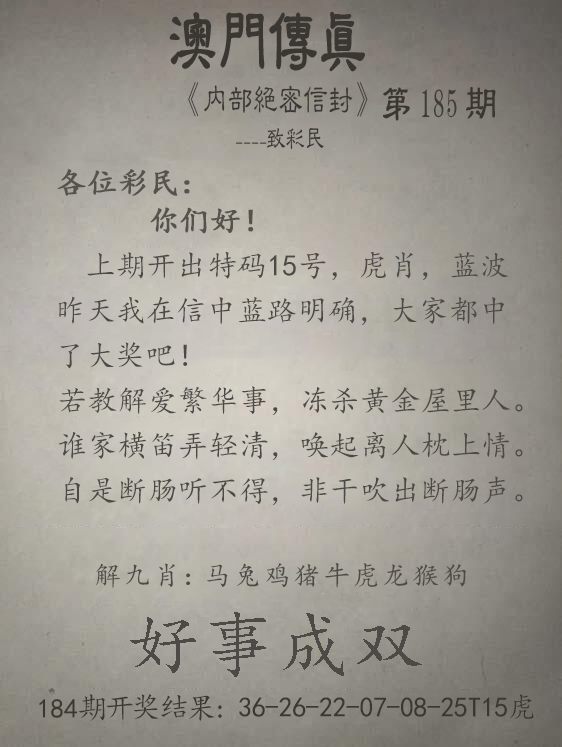 澳門傳眞
《內部絕密信封》第185期
----致彩民
各位彩民：
你们好！
上期开出特码15号，虎肖，蓝波
昨天我在信中蓝路明确，大家都中
了大奖吧！
若教解爱繁华事，冻杀黄金屋里人。
谁家横笛弄轻清，唤起离人枕上情。
自是断肠听不得，非干吹出断肠声。
解九肖：马兔鸡猪牛虎龙猴狗
好事成双
184期开奖结果：36-26-22-07-08-25T15虎